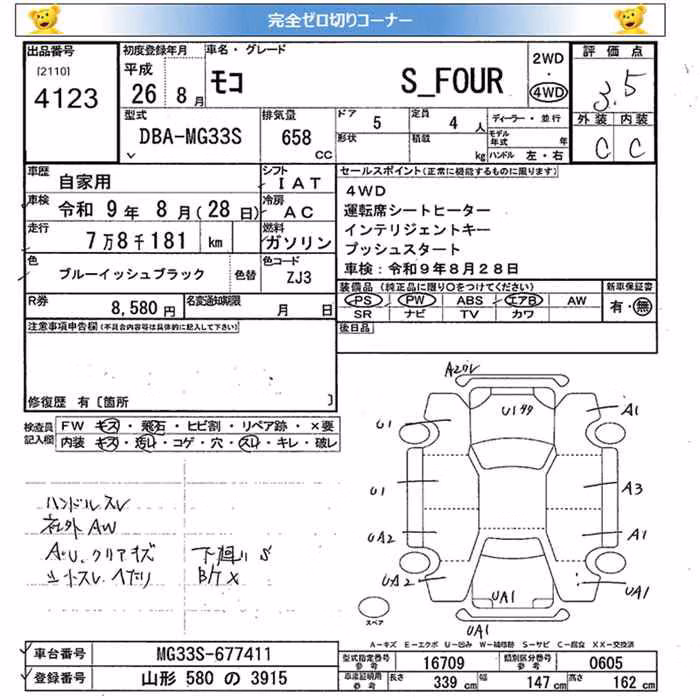 完全ゼロ切りコーナー
出品番号 初度登録年月 車名・グレード 2WD・4WD 評価点
[2110] 4123 平成 26 8月 モコ S_FOUR 3.5
外装 内装
C C
型式 DBA-MG33S 排気量 658 CC ドア 5 定員 4 人 ディーラー・並行
形状 積載 kg モデル年式 年 ハンドル 左・右
車歴 自家用 シフト IAT
車検 令和 9年 8月(28日) 冷房 AC
走行 7万8千181 km 燃料 ガソリン
色 ブルーイッシュブラック 色替 色コード ZJ3
R券 8,580円 名変通知期限 月 日
セールスポイント(正常に機能するものに限ります)
4WD
運転席シートヒーター
インテリジェントキー
プッシュスタート
車検:令和9年8月28日
装備品(純正品に限り○をつけてください) 新車保証書
PS PW ABS エアB AW 有・無
SR ナビ TV カワ
注意事項申告欄(不具合内容等は具体的に記入して下さい) 後日品
修復歴 有〔箇所 〕
検査員記入欄 FW キズ・飛石・ヒビ割・リペア跡・×要
内装 キズ・汚れ・コゲ・穴・スレ・キレ・破レ
ハンドルスレ
社外AW
A・U、クリアキズ 下廻りS
シートスレ、ヘタリ B/T×
U1
A1
U1
A3
UA2
A1
UA2
UA1
UA1
UA1
スペア
A-キズ E-エクボ U-凹み W-補修跡 S-サビ C-腐食 XX-交換済
車台番号 MG33S-677411
登録番号 山形 580 の 3915
型式指定番号参考 16709 類別区分番号参考 0605
車庫証明用参考 長さ 339cm 幅 147cm 高さ 162cm